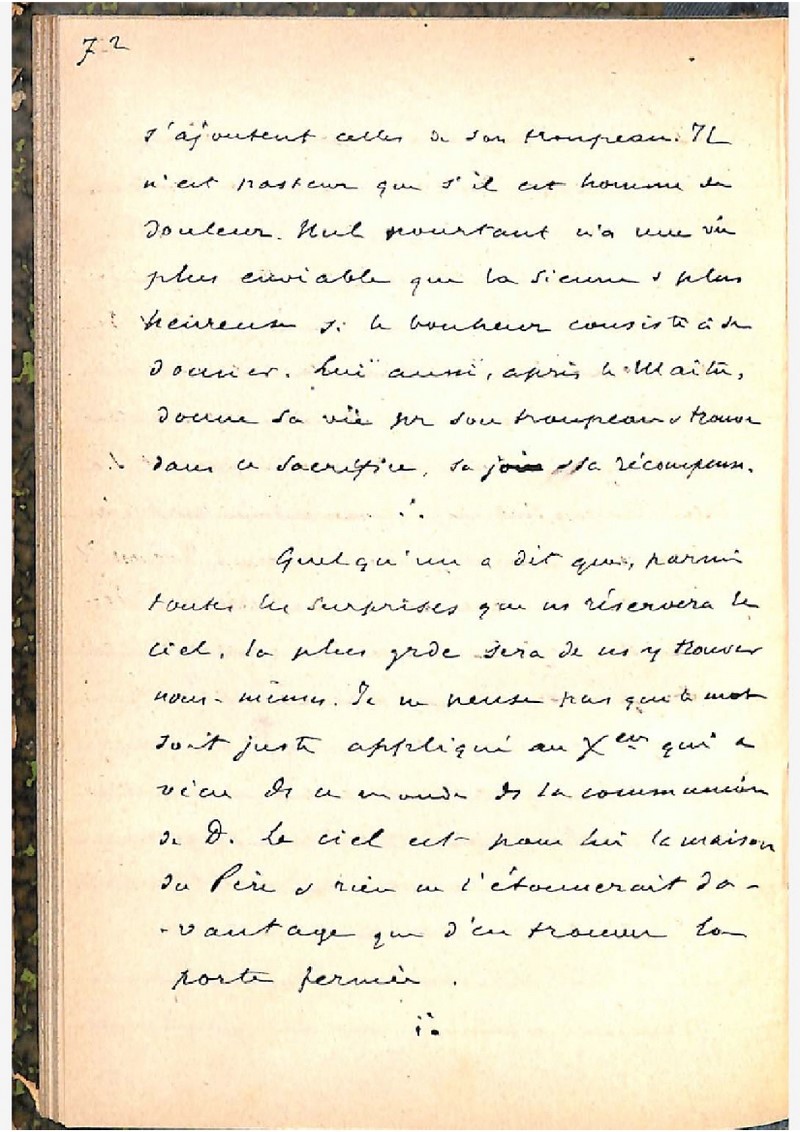 72
s'ajoutent celles de son troupeau. Il
n'est pasteur que s'il est homme de
douleur. Nul pourtant n'a une vie
plus enviable que la sienne & plus
heureuse si le bonheur consiste à se
donner. Lui aussi, après le Maître,
donne sa vie pr son troupeau & trouve
dans ce sacrifice, sa joie & sa récompense.
Quelqu'un a dit que, parmi
toutes les surprises que ns réservera le
ciel, la plus grde sera de ns y trouver
nous-mêmes. Je ne pense pas que le mot
soit juste appliqué au Xen qui a
vécu ds ce monde ds la communion
de D. Le ciel est pour lui la maison
du Père & rien ne l'étonnerait da-
-vantage que d'en trouver la
porte fermée.